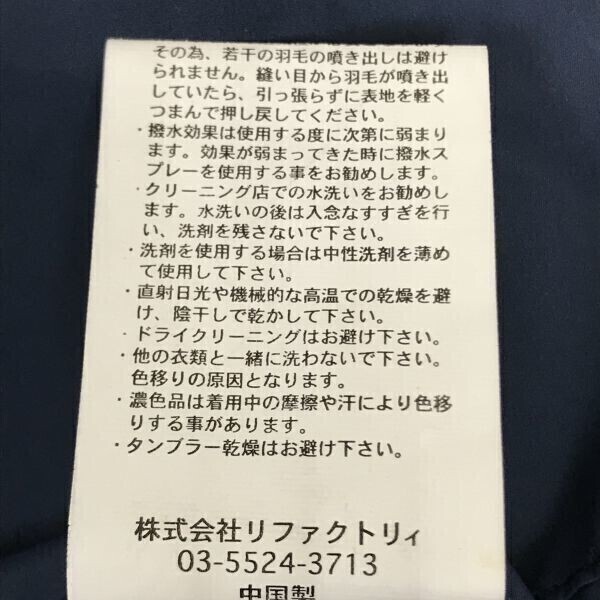 その為、若干の羽毛の噴き出しは避け
られません。縫い目から羽毛が噴き出
していたら、引っ張らずに表地を軽く
つまんで押し戻してください。
・撥水効果は使用する度に次第に弱まり
ます。効果が弱まってきた時に撥水ス
プレーを使用する事をお勧めします。
・クリーニング店での水洗いをお勧めし
ます。水洗いの後は入念なすすぎを行
い、洗剤を残さないで下さい。
・洗剤を使用する場合は中性洗剤を薄め
て使用して下さい。
・直射日光や機械的な高温での乾燥を避
け、陰干しで乾かして下さい。
・ドライクリーニングはお避け下さい。
・他の衣類と一緒に洗わないで下さい。
色移りの原因となります。
・濃色品は着用中の摩擦や汗により色移
りする事があります。
・タンブラー乾燥はお避け下さい。
株式会社リファクトリィ
03-5524-3713
中国製